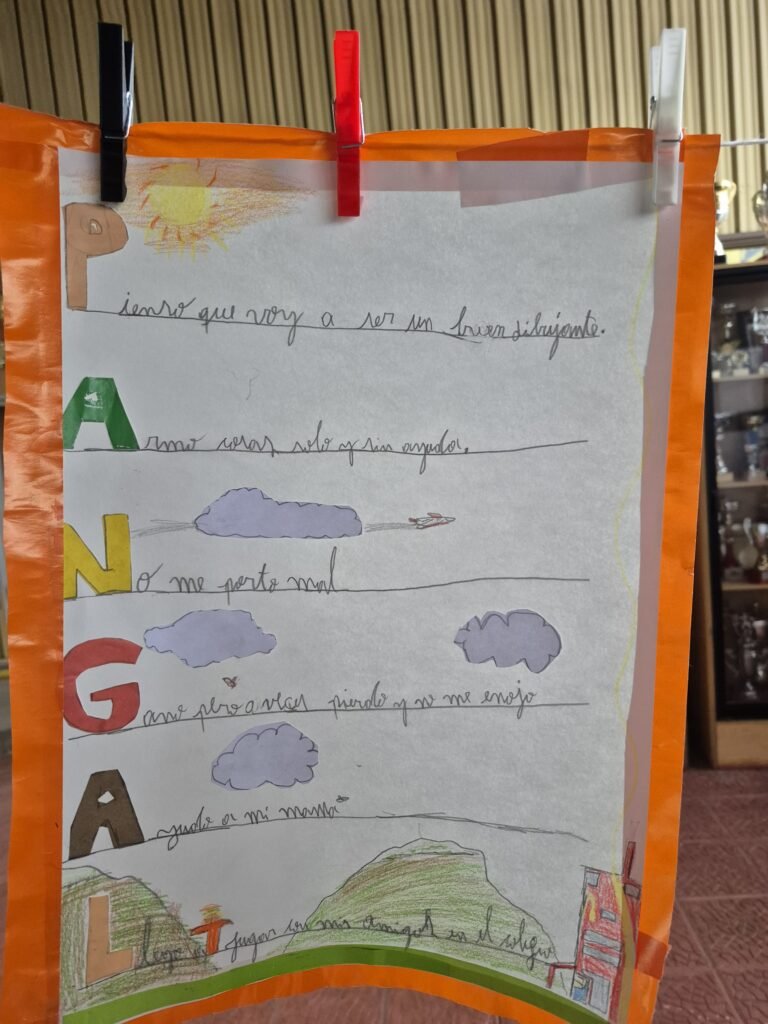 Pienso que voy a ser un buen dibujante.
Armo cosas solo y sin ayuda.
No me porto mal
Gano pero a veces pierdo y no me enojo
Ayudo a mi mamá
Llego a jugar con mis amigos en el colegio